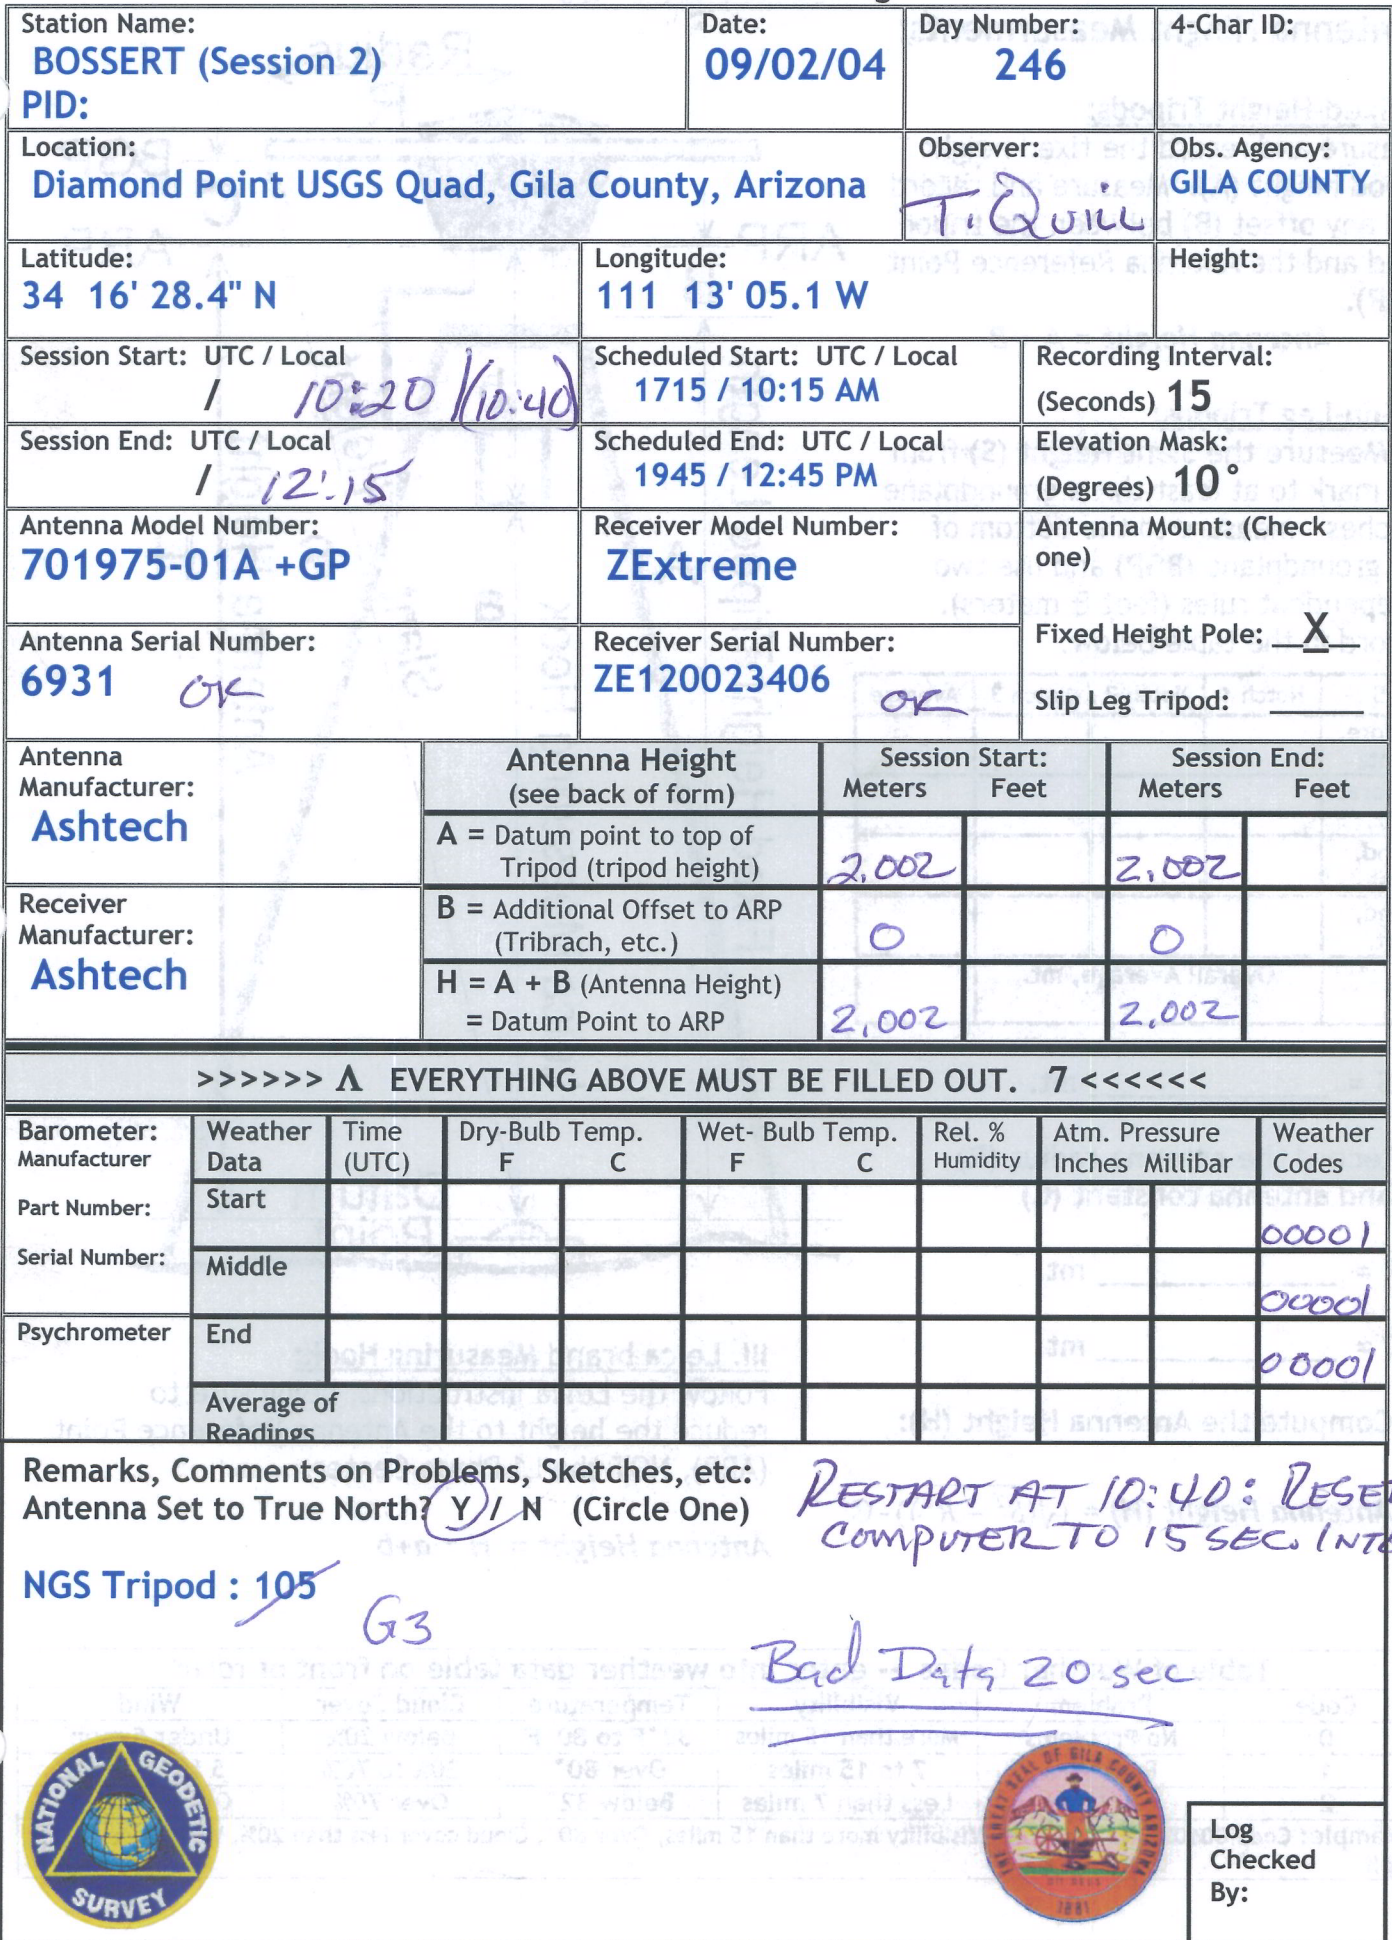 Station Name:
BOSSERT (Session 2)
PID:
Date:
09/02/04
Day Number:
246
4-Char ID:
Location:
Diamond Point USGS Quad, Gila County, Arizona
Observer:
T. Quill
Obs. Agency:
GILA COUNTY
Latitude:
34 16' 28.4" N
Longitude:
111 13' 05.1 W
Height:
Session Start: UTC / Local
/ 10:20 (10:40)
Scheduled Start: UTC / Local
1715 / 10:15 AM
Recording Interval:
(Seconds) 15
Session End: UTC / Local
/ 12:15
Scheduled End: UTC / Local
1945 / 12:45 PM
Elevation Mask:
(Degrees) 10°
Antenna Model Number:
701975-01A +GP
Receiver Model Number:
ZExtreme
Antenna Mount: (Check
one)
Fixed Height Pole: X
Slip Leg Tripod: ______
Antenna Serial Number:
6931 OK
Receiver Serial Number:
ZE120023406
OK
Antenna
Manufacturer:
Ashtech
Receiver
Manufacturer:
Ashtech
Antenna Height
(see back of form)
Session Start:
Meters Feet
Session End:
Meters Feet
A = Datum point to top of
Tripod (tripod height)
2.002 2.002
B = Additional Offset to ARP
(Tribrach, etc.)
0 0
H = A + B (Antenna Height)
= Datum Point to ARP
2.002 2.002
>>>>>> Λ EVERYTHING ABOVE MUST BE FILLED OUT. 7 <<<<<<
Barometer:
Manufacturer
Part Number:
Serial Number:
Psychrometer
Weather
Data
Time
(UTC)
Dry-Bulb Temp.
F C
Wet- Bulb Temp.
F C
Rel. %
Humidity
Atm. Pressure
Inches Millibar
Weather
Codes
Start
00001
Middle
00001
End
00001
Average of
Readings
Remarks, Comments on Problems, Sketches, etc:
Antenna Set to True North? Y / N (Circle One)
RESTART AT 10:40: RESE
COMPUTER TO 15 SEC. INTE
NGS Tripod : 105
G3
Bad Data 20 sec
NATIONAL GEODETIC SURVEY
THE GREAT SEAL OF GILA COUNTY ARIZONA
1881
Log
Checked
By: